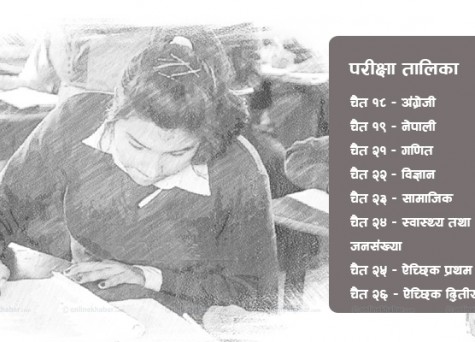 परीक्षा तालिका
चैत १८ - अंग्रेजी
चैत १९ - नेपाली
चैत २१ - गणित
चैत २२ - विज्ञान
चैत २३ - सामाजिक
चैत २४ - स्वास्थ्य तथा
जनसंख्या
चैत २५ - ऐच्छिक प्रथम
चैत २६ - ऐच्छिक